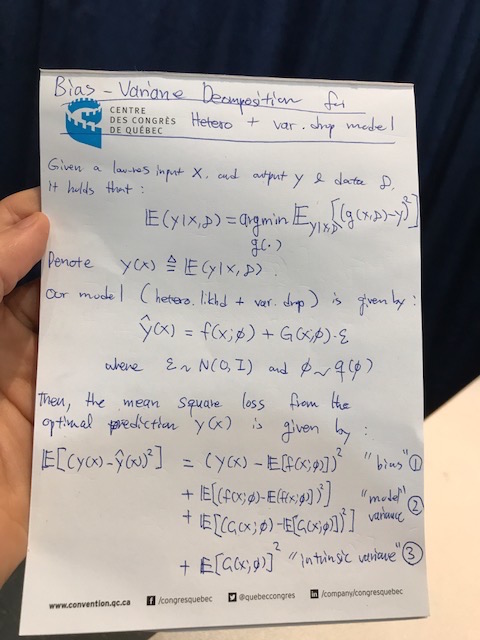 Bias - Variance Decomposition for
CENTRE
DES CONGRÈS
DE QUÉBEC
Hetero + var. drop model
Given a low-res input X, and output y & data D,
it holds that:
E(y|x,D) = argmin E_{y|x,D} [(g(x,D)-y)²]
g(·)
Denote y(x) ≜ E(y|x,D).
Our model (hetero. likhd + var. drop) is given by:
ŷ(x) = f(x;φ) + G(x;φ)·ε
where ε ~ N(0, I) and φ ~ q(φ)
Then, the mean square loss from the
optimal prediction y(x) is given by:
E[(y(x)-ŷ(x))²] = (y(x) - E[f(x;φ)])² "bias" ①
+ E[(f(x;φ)-E(f(x;φ)])²] "model" ②
+ E[(G(x;φ) - E[G(x;φ)])²] variance
+ E[G(x;φ)]² "intrinsic variance" ③
www.convention.qc.ca /congresquebec @quebeccongres /company/congresquebec